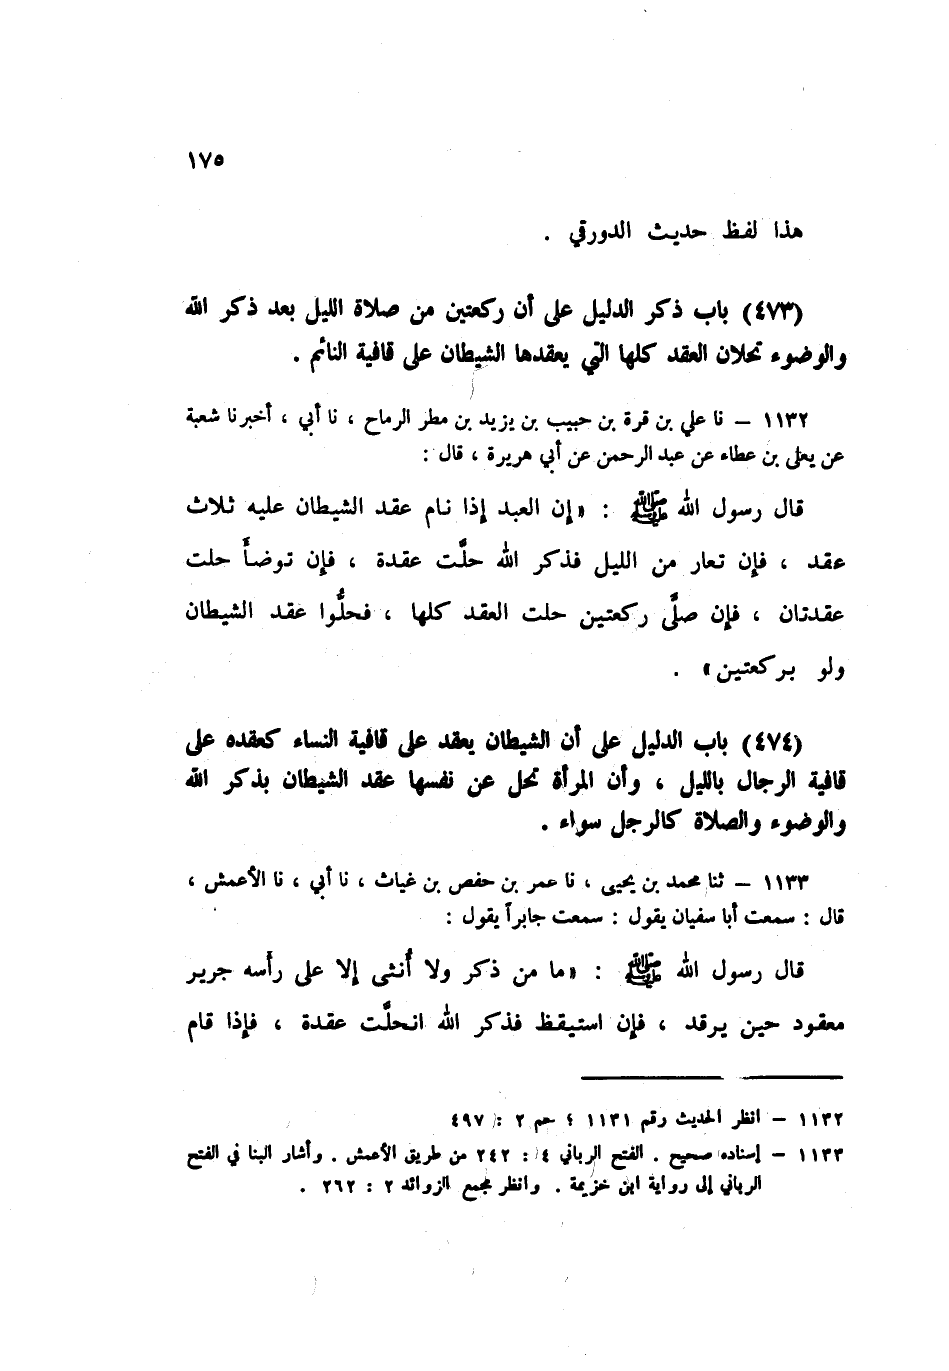 ١٧٥
هذا لفظ حديث الدورقي .
(٤٧٣) باب ذكر الدليل على أن ركعتين من صلاة الليل بعد ذكر الله
والوضوء تحلان العقد كلها التي يعقدها الشيطان على قافية النائم .
١١٣٢ – نا علي بن قرة بن حبيب بن يزيد بن مطر الرماح ، نا أبي ، أخبرنا شعبة
عن يعلى بن عطاء عن عبد الرحمن عن أبي هريرة ، قال :
قال رسول الله ﷺ : «إن العبد إذا نام عقد الشيطان عليه ثلاث
عقد ، فإن تعار من الليل فذكر الله حلَّت عقدة ، فإن توضأَ حلت
عقدتان ، فإن صلَّى ركعتين حلت العقد كلها ، فحلُّوا عقد الشيطان
ولو بركعتين» .
(٤٧٤) باب الدليل على أن الشيطان يعقد على قافية النساء كعقده على
قافية الرجال بالليل ، وأن المرأة تحل عن نفسها عقد الشيطان بذكر الله
والوضوء والصلاة كالرجل سواء .
١١٣٣ – ثنا محمد بن يحيى ، نا عمر بن حفص بن غياث ، نا أبي ، نا الأعمش ،
قال : سمعت أبا سفيان يقول : سمعت جابراً يقول :
قال رسول الله ﷺ : «ما من ذكر ولا أُنثى إلا على رأسه جرير
معقود حين يرقد ، فإن استيقظ فذكر الله انحلَّت عقدة ، فإذا قام
١١٣٢ – انظر الحديث رقم ١١٣١ ؛ حم ٢ : ٤٩٧
١١٣٣ – إسناده صحيح . الفتح الرباني ٤ : ٢٤٢ من طريق الأعمش . وأشار البنا في الفتح
الرباني إلى رواية ابن خزيمة . وانظر مجمع الزوائد ٢ : ٢٦٢ .